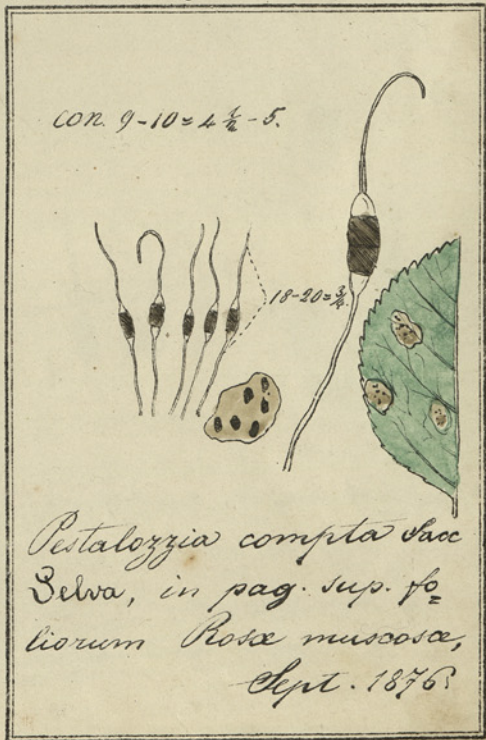 con. 9-10=4½-5.
18-20=¾
Pestalozzia compta Sacc
Selva, in pag. sup. fo=
liorum Rosæ muscosæ,
Sept. 1876